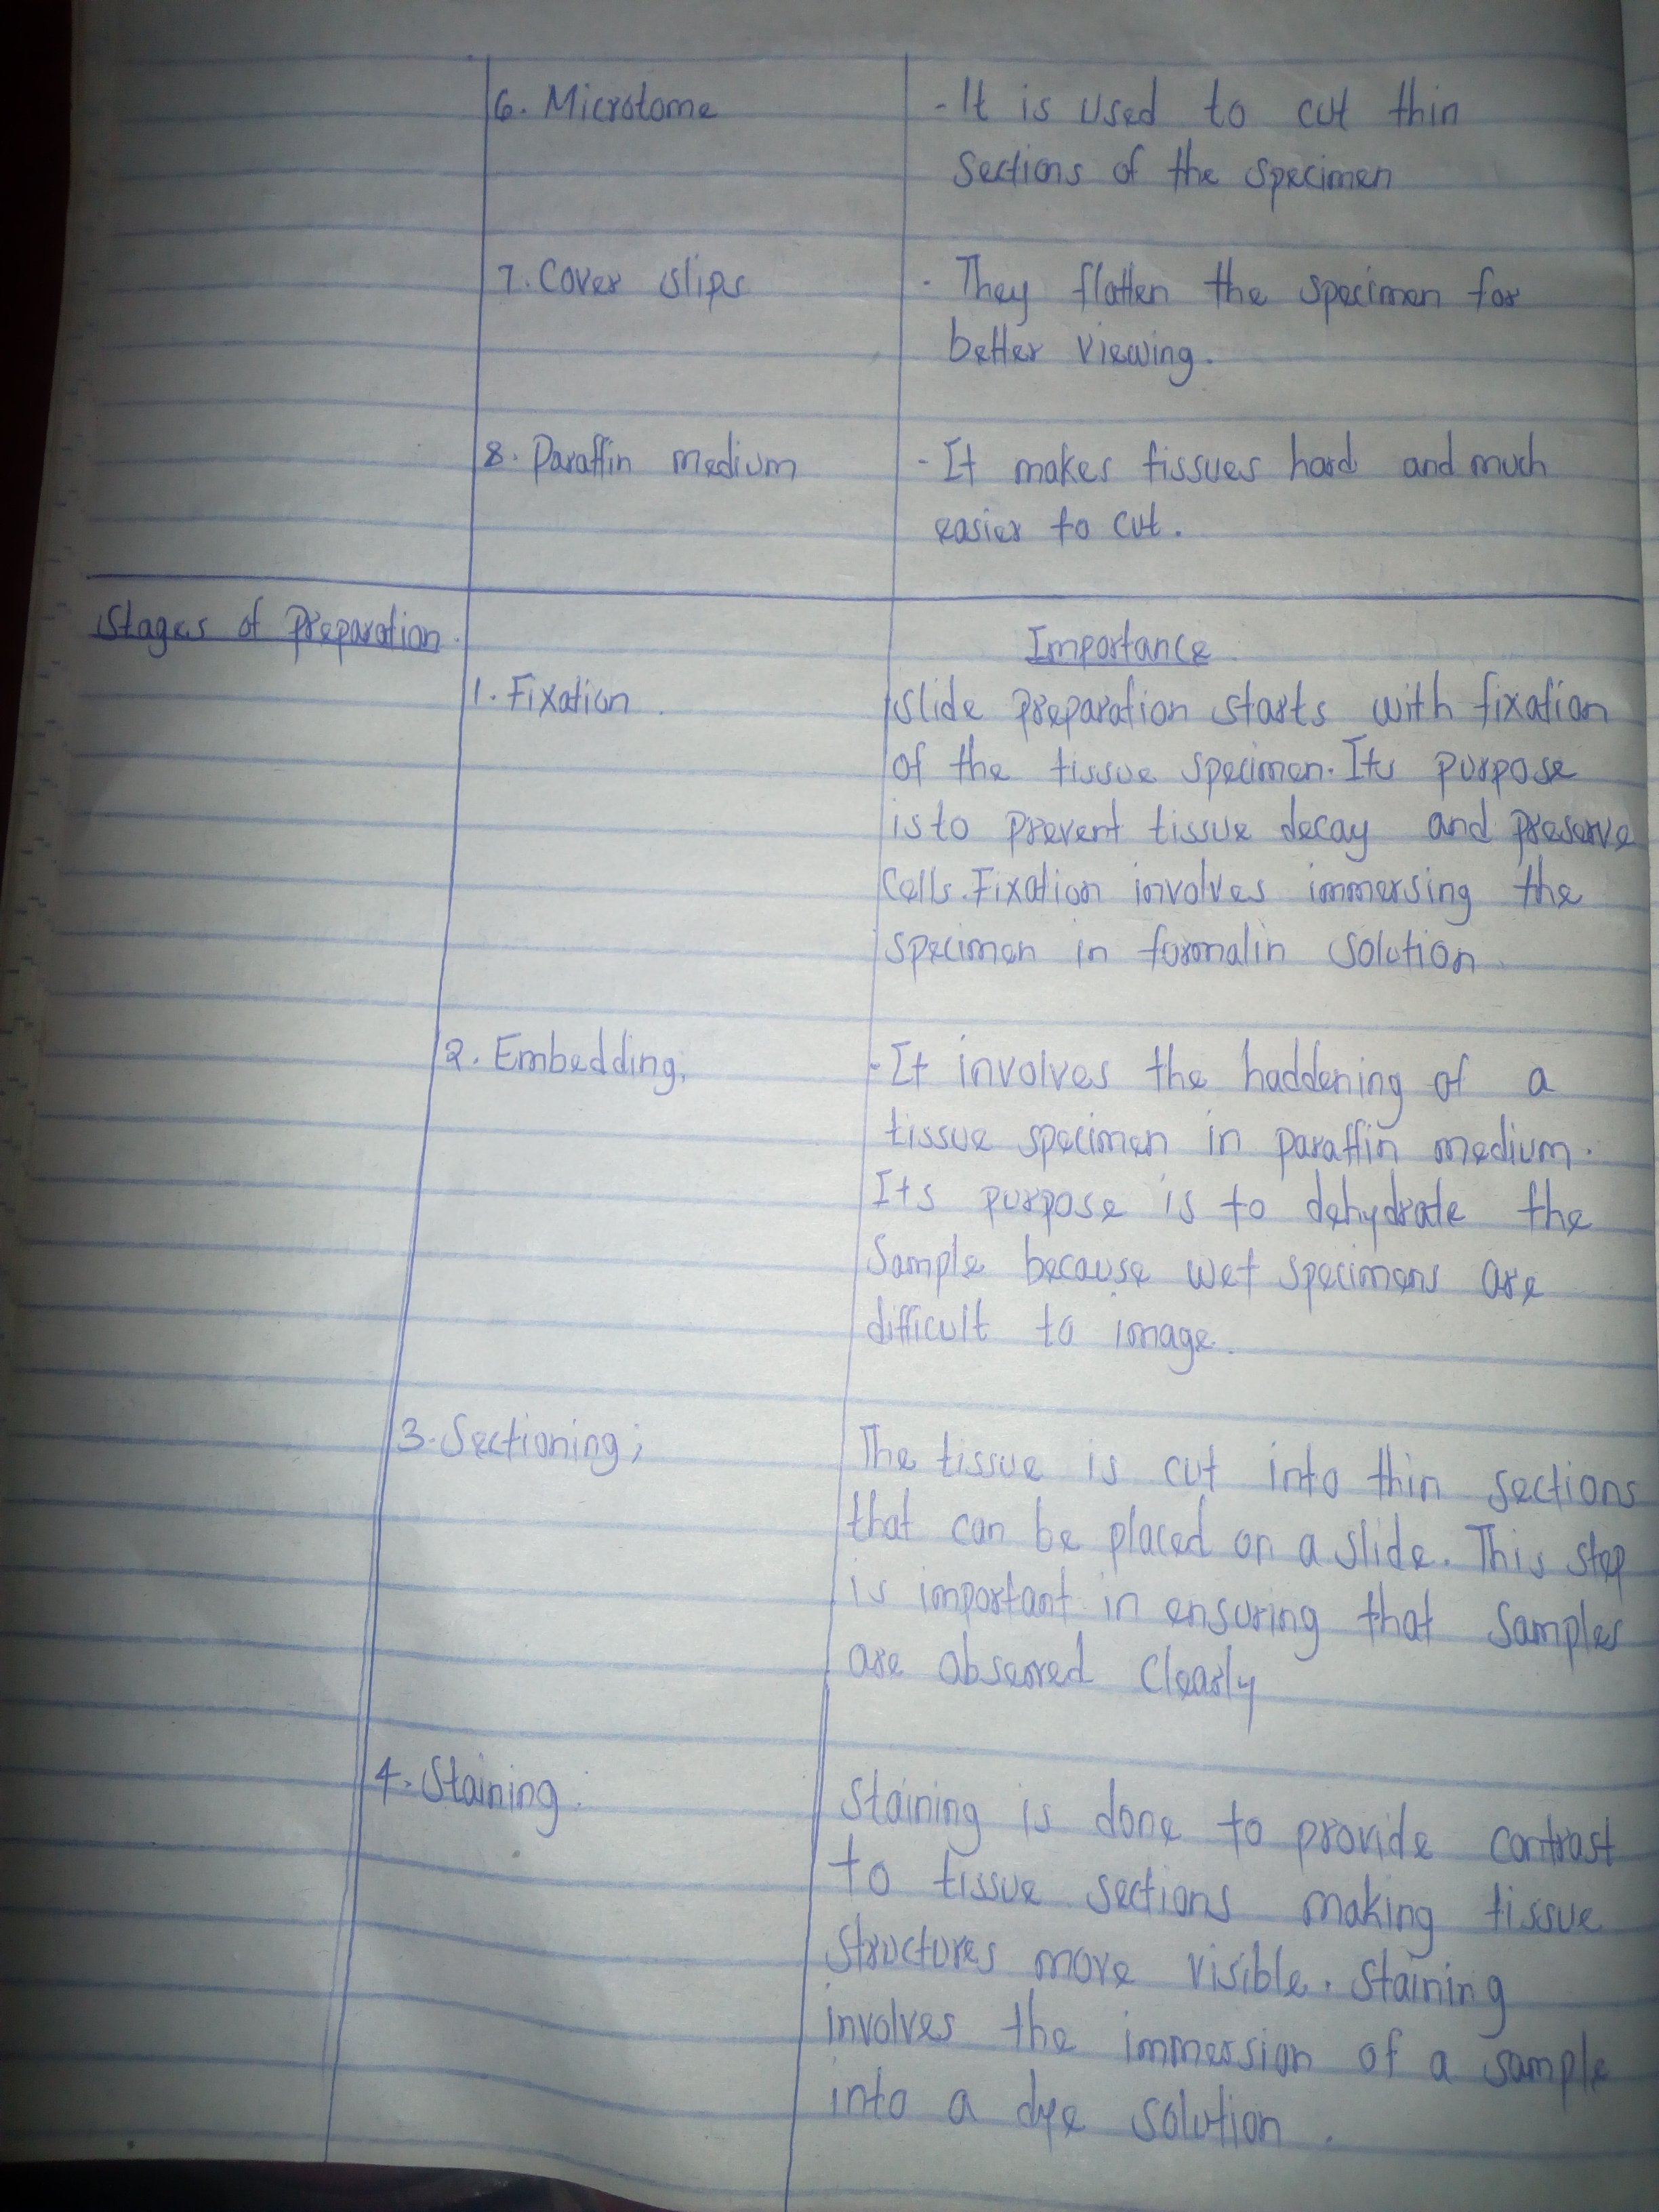 6. Microtome
- It is used to cut thin
sections of the specimen
7. Cover slips
- They flatten the specimen for
better viewing.
8. Paraffin medium
- It makes tissues hard and much
easier to cut.
Stages of Preparation.
Importance
1. Fixation
Slide preparation starts with fixation
of the tissue specimen. Its purpose
is to prevent tissue decay and preserve
Cells. Fixation involves immersing the
specimen in formalin solution
2. Embedding.
- It involves the haddening of a
tissue specimen in paraffin medium.
Its purpose is to dehydrate the
Sample because wet specimens are
difficult to image.
3. Sectioning;
The tissue is cut into thin sections
that can be placed on a slide. This step
is important in ensuring that samples
are observed clearly
4. Staining.
Staining is done to provide contrast
to tissue sections making tissue
structures more visible. Staining
involves the immersion of a sample
into a dye solution.